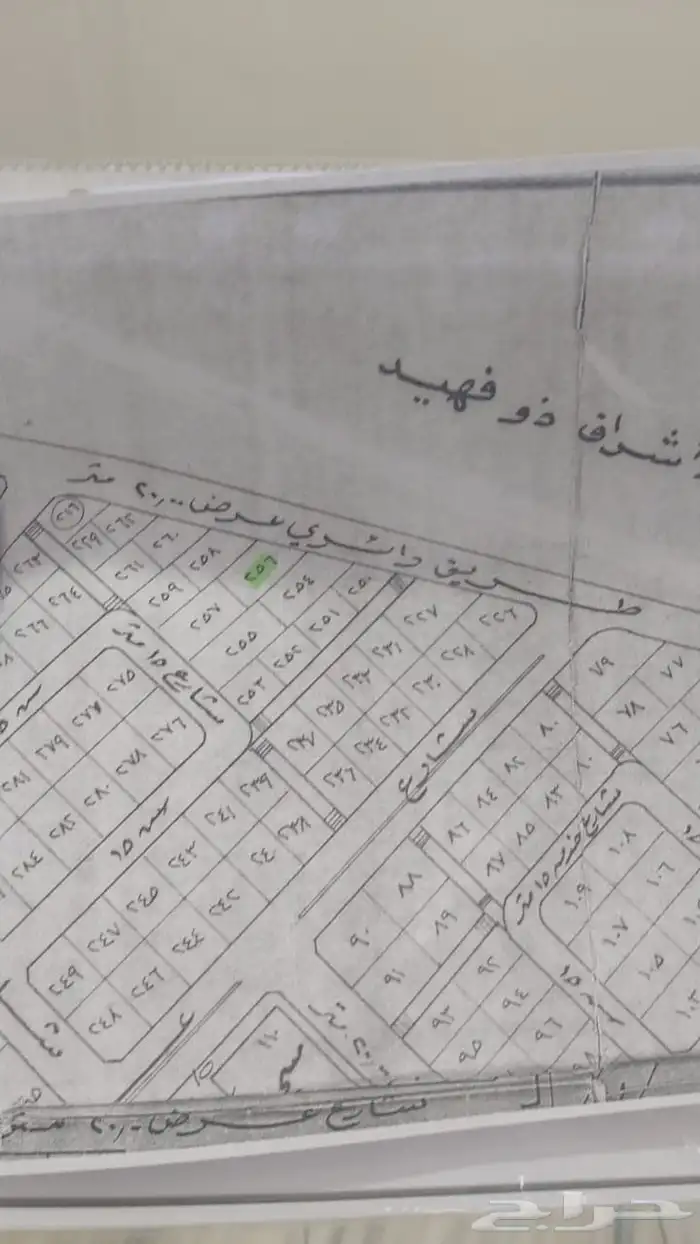 اشراف ذو فهيد
طريق دائري عرض ٢٠,٠٠ متر
٢٦٣
٢٦٢
٢٦٠
٢٥٨
٢٥٦
٢٥٤
٢٥٠
٢٦٤
٢٦١
٢٥٩
٢٥٧
٢٥٥
٢٥٢
٢٥١
٢٥٣
٢٢٧
٢٢٦
٢٣١
٢٢٨
٢٣٣
٢٣٠
٢٣٥
٢٣٢
٢٣٧
٢٣٤
٢٣٦
٢٦٦
شارع ١٥ متر
٢٧٥
٢٧٧
٢٧٦
٢٧٩
٢٧٨
٢٨١
٢٨٠
٢٨٢
٢٨٤
ش ١٥
٢٣٩
٢٤١
٢٣٨
٢٤٣
٢٤٠
٢٤٥
٢٤٢
٢٤٧
٢٤٤
٢٤٩
٢٤٦
٢٤٨
شارع
٧٩
٧٧
٧٨
٧٦
٨٠
٨٢
٨٤
٨٣
٨٦
٨٥
٨٧
٨٨
٨٩
٩٠
٩١
٩٢
٩٣
٩٤
٩٥
٩٦
شارع خدمه ١٥ متر
١٠٨
١٠٦
١٠٩
١٠٧
١٠٥
١٠٣
١١٠
٢٠,٠٠ متر
شارع عرض ٢٠,٠٠ متر
حراج